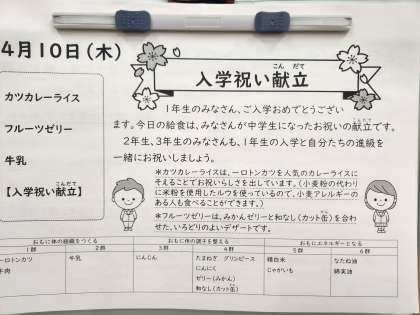 4月10日(木)
こん だて
入学祝い献立
カツカレーライス
フルーツゼリー
牛乳
こんだて
【入学祝い献立】
1年生のみなさん、ご入学おめでとうござい
ます。今日の給食は、みなさんが中学生になったお祝いの献立です。
2年生、3年生のみなさんも、1年生の入学と自分たちの進級を
一緒にお祝いしましょう。
*カツカレーライスは、一口トンカツを人気のカレーライスに
そえることでお祝いらしさを出しています。(小麦粉の代わり
に米粉を使用したルウを使っているので、小麦アレルギーの
ある人も食べることができます。)
*フルーツゼリーは、みかんゼリーと和なし(カット缶)を合わ
せた、いろどりのよいデザートです。
おもに体の組織をつくる おもに体の調子を整える おもにエネルギーとなる
1群 2群 3群 4群 5群 6群
一口トンカツ 牛乳 にんじん たまねぎ グリンピース 精白米 なたね油
牛肉 にんにく じゃがいも 綿実油
ゼリー(みかん)
和なし(カット缶)